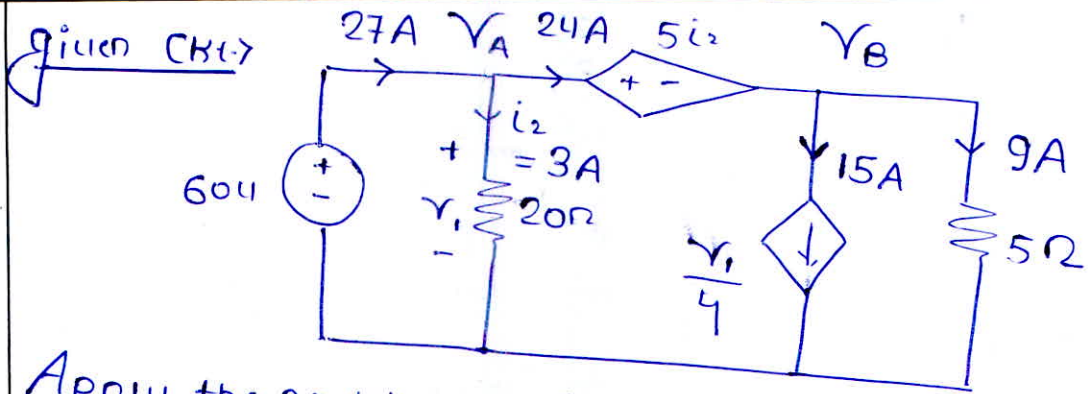 given Ckt->
27A V_A 24A 5i₂ V_B
+ -
i₂
= 3A
+
V₁
-
20Ω
60V
+
-
15A
V₁/4
9A
5Ω
Apply the